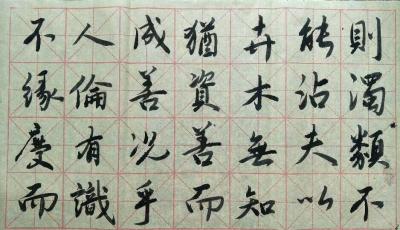 則濁類不
能沾夫以
卉木無知
猶資善而
成善况乎
人倫有識
不緣慶而